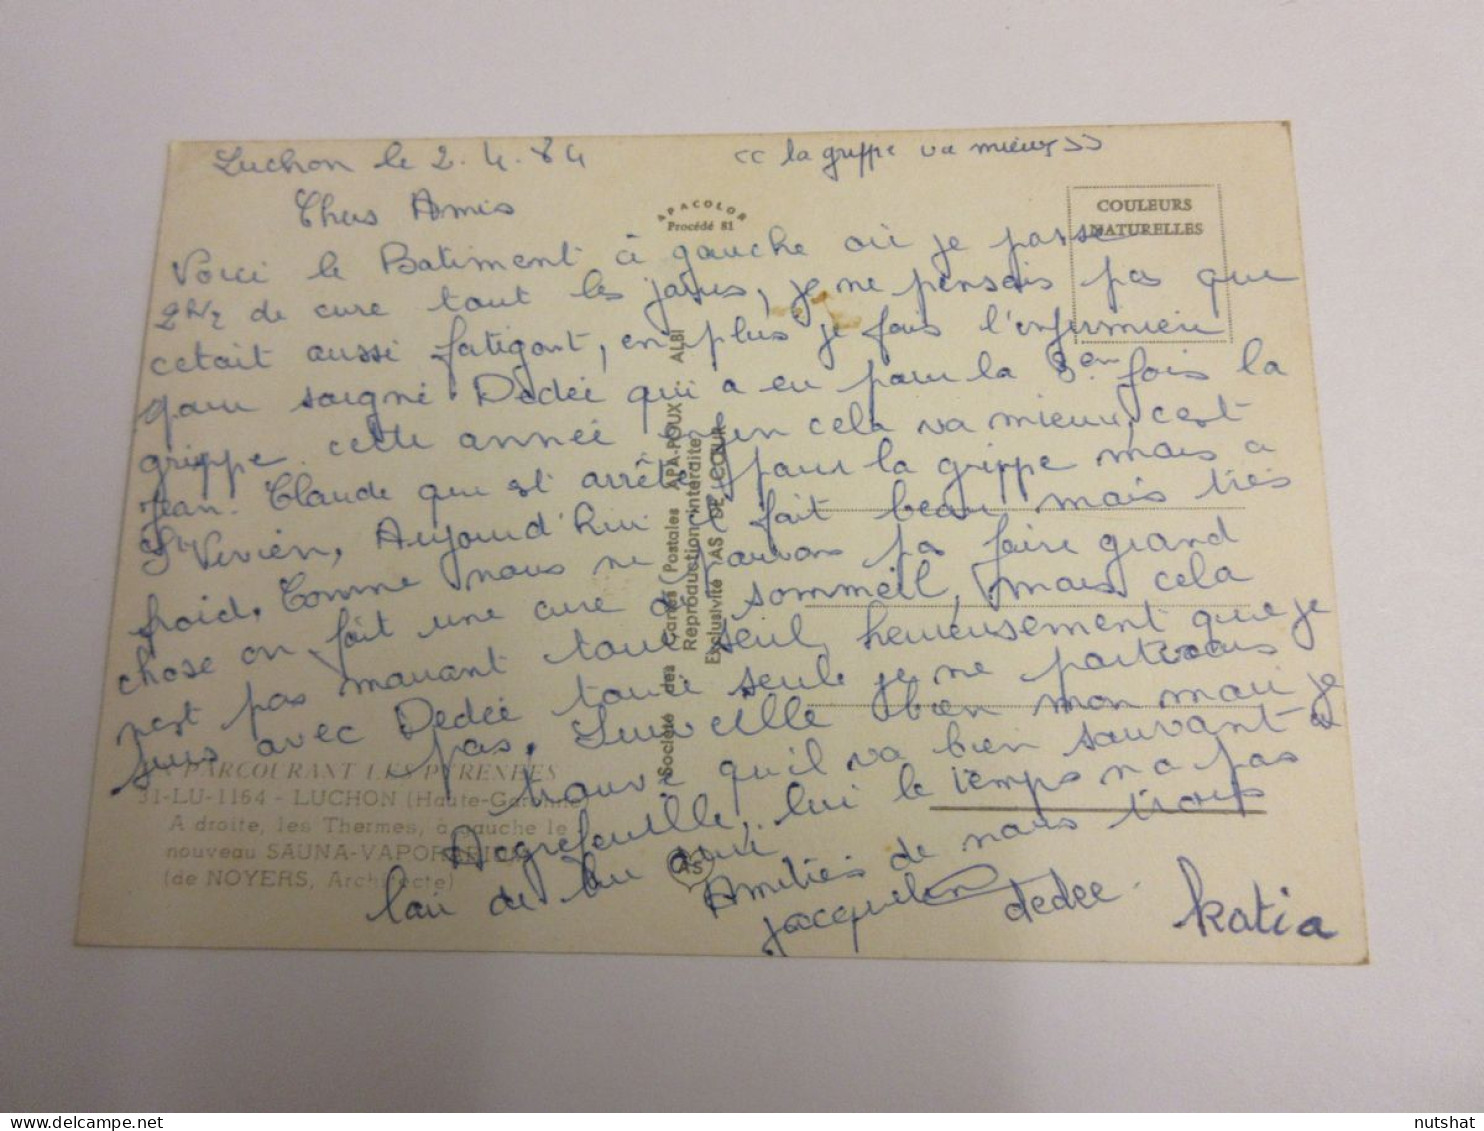 Luchon le 2.4.84
<< la grippe va mieux >>
Chers Amis
Voici le Batiment à gauche où je passe
2h½ de cure tout les jours, je ne pensais pas que
cetait aussi fatigant, en plus je fais l'infirmiere
pour soigné Dédée qui a eu pour la 3em fois la
grippe cette année enfin cela va mieux, c'est
Jean. Claude qui est arrêté pour la grippe mais a
St Vivien, Aujourd'hui il fait beau mais très
froid, Comme nous ne pouvons pas faire grand
chose on fait une cure de sommeil, mais cela
n'est pas marrant toute seul, heureusement que je
suis avec Dédée toute seule je ne partirais
pas.
bien mon mari je
trouve qu'il va bien sauvant a
Aigrefeuille, lui le temps n'a pas
l'air de lui
Amitiés de nous trois
Jacqueline dedée Katia
APACOLOR
Procédé 81
COULEURS
NATURELLES
Société des Cartes Postales APA-POUX - ALBI
Reproduction interdite
Exclusivité "AS DE CŒUR"
AS
PARCOURANT LES PYRENEES
31-LU-1164 - LUCHON (Haute-Garonne)
A droite, les Thermes, à gauche le
nouveau SAUNA-VAPORARIUM
(de NOYERS, Architecte)
nutshat